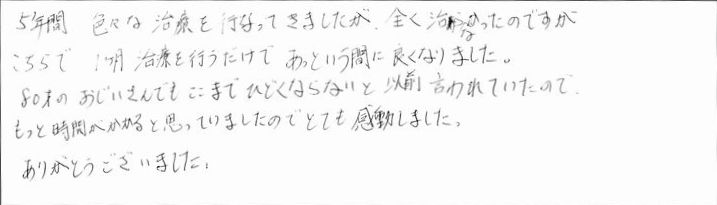 5年間 色々な治療を行なってきましたが、全く治らなかったのですが
こちらで 1ヶ月 治療を行うだけで あっという間に良くなりました。
80才の おじいさんでも ここまで ひどくならないと 以前 言われていたので、
もっと時間がかかると思っていましたのでとても感動しました。
ありがとうございました。